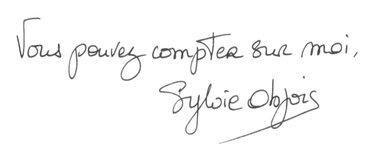 Vous pouvez compter sur moi,
Sylvie Objois